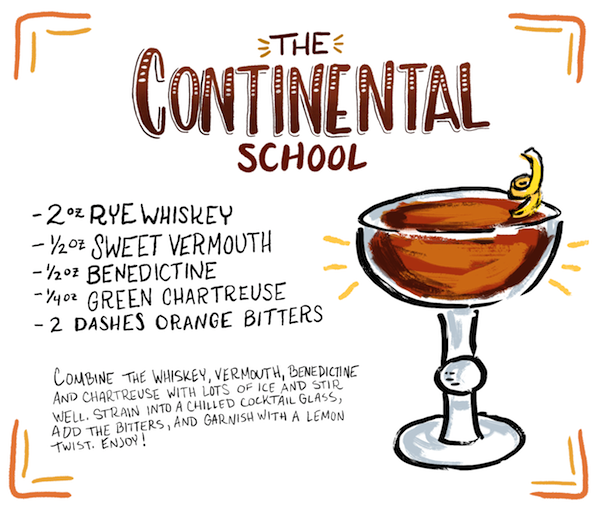 THE
CONTINENTAL
SCHOOL
- 2 oz RYE WHISKEY
- 1/2 oz SWEET VERMOUTH
- 1/2 oz BENEDICTINE
- 1/4 oz GREEN CHARTREUSE
- 2 DASHES ORANGE BITTERS
COMBINE THE WHISKEY, VERMOUTH, BENEDICTINE
AND CHARTREUSE WITH LOTS OF ICE AND STIR
WELL. STRAIN INTO A CHILLED COCKTAIL GLASS,
ADD THE BITTERS, AND GARNISH WITH A LEMON
TWIST. ENJOY!